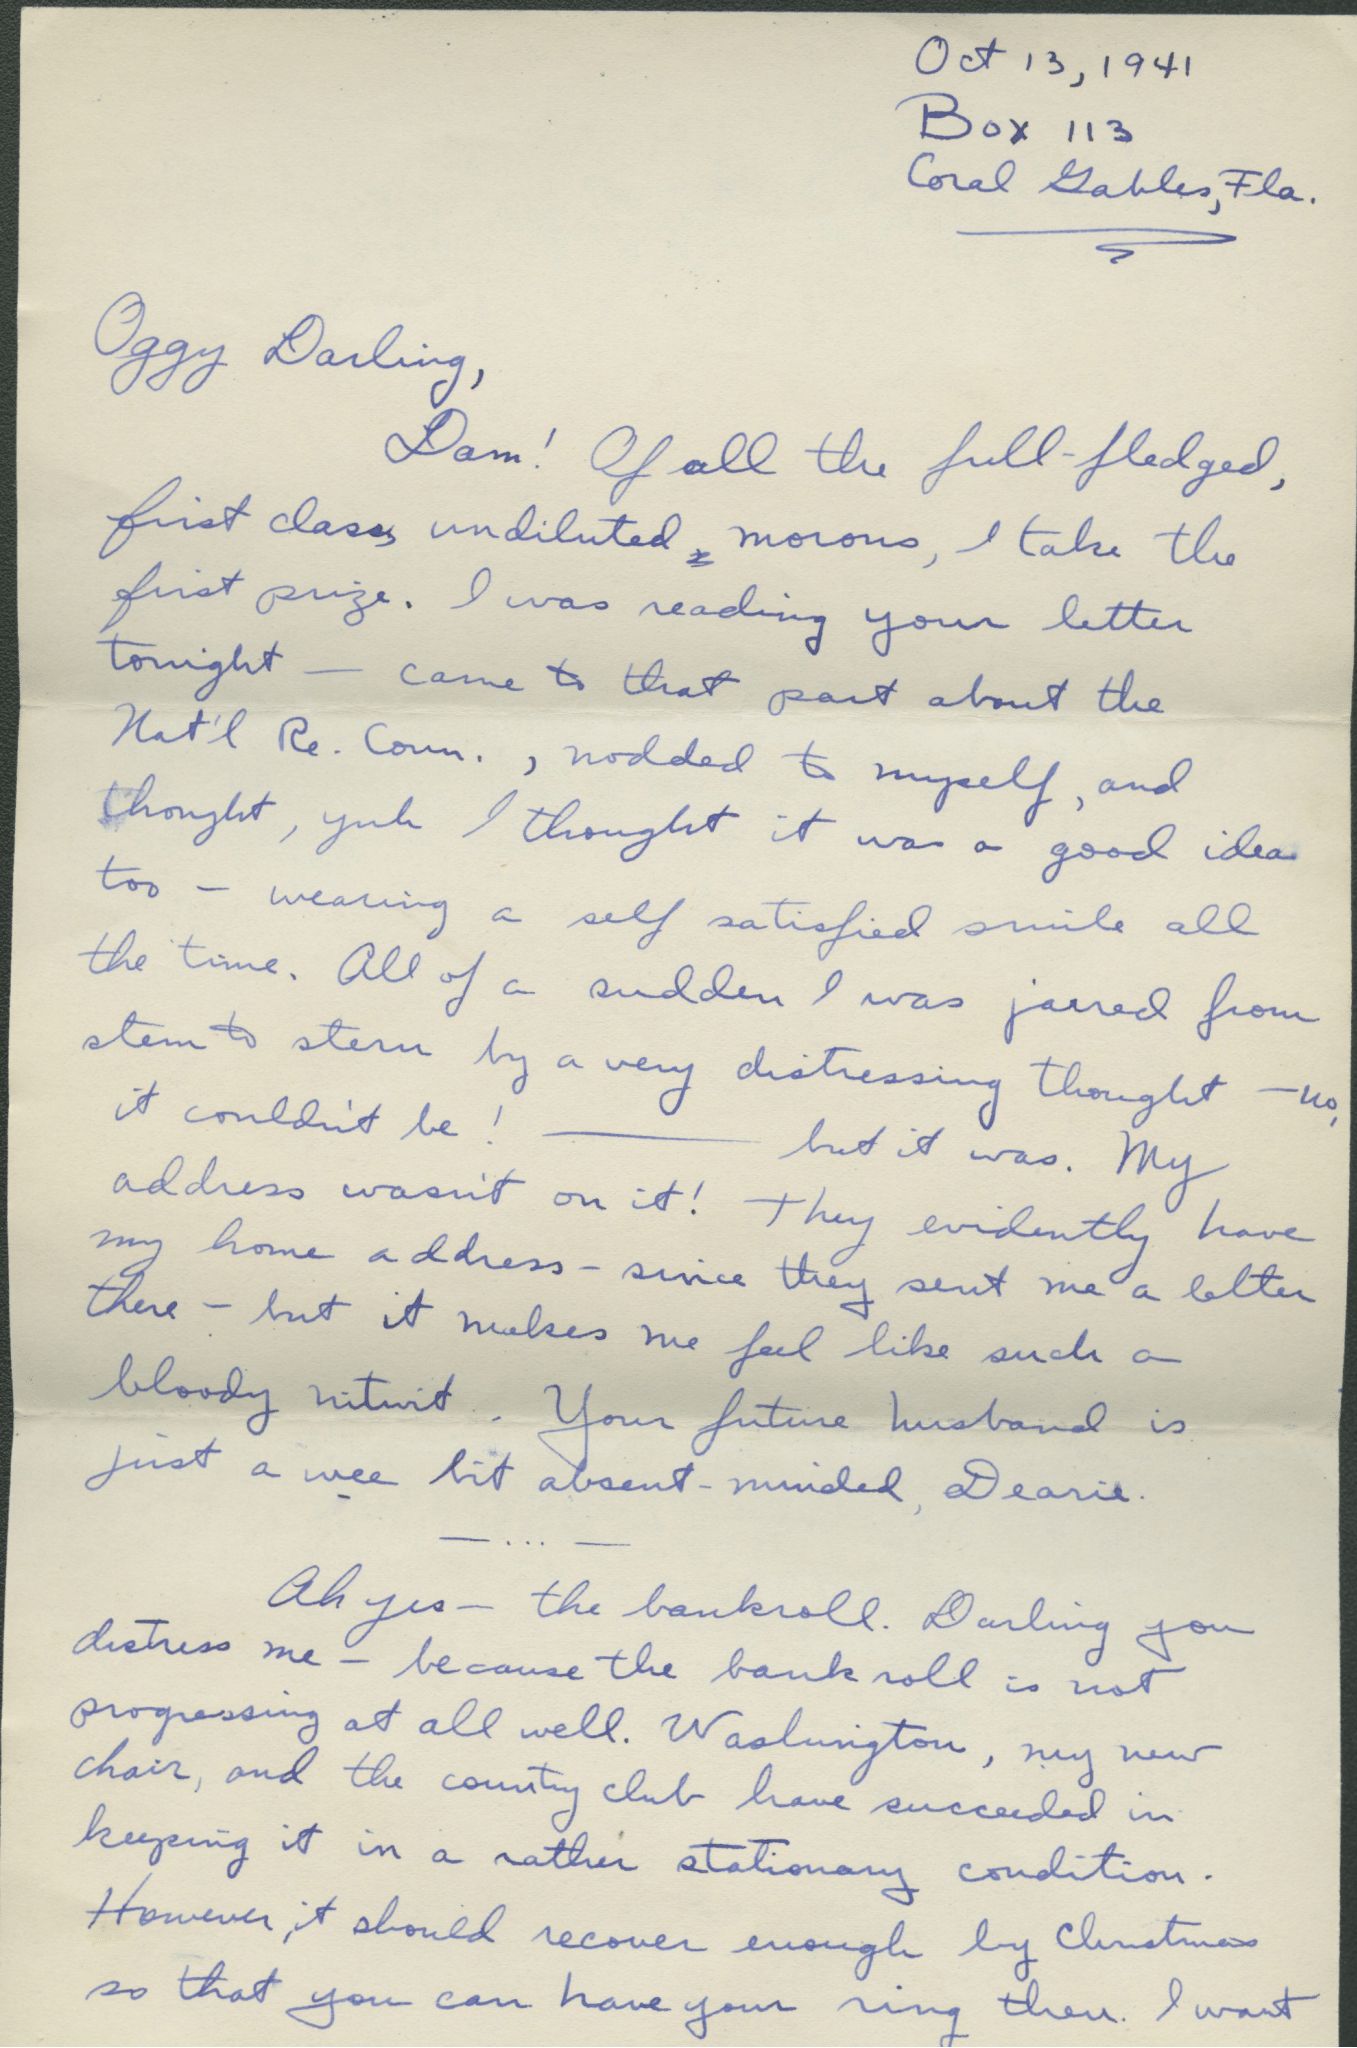 Oct 13, 1941
Box 113
Coral Gables, Fla.
Oggy Darling,
Dam! Of all the full-fledged,
first class, undiluted, morons, I take the
first prize. I was reading your letter
tonight — came to that part about the
Nat'l Re. Coun., nodded to myself, and
thought, yuh I thought it was a good idea
too — wearing a self satisfied smile all
the time. All of a sudden I was jarred from
stem to stern by a very distressing thought — no,
it couldn't be! ——— but it was. My
address wasn't on it! They evidently have
my home address — since they sent me a letter
there — but it makes me feel like such a
bloody nitwit. Your future husband is
just a wee bit absent-minded, Dearie.
— ... —
Ah yes — the bankroll. Darling you
distress me — because the bankroll is not
progressing at all well. Washington, my new
chair, and the country club have succeeded in
keeping it in a rather stationary condition.
However, it should recover enough by Christmas
so that you can have your ring then. I want